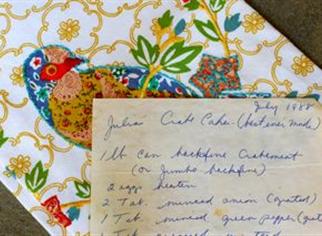 July 1988
Julia' Crab Cakes - (best ever made)
1 lb can backfine Crabmeat
(or Jumbo backfine)
2 eggs beaten
2 Tab. minced onion (grated)
1 Tab. minced green pepper (grat
1 Tab.